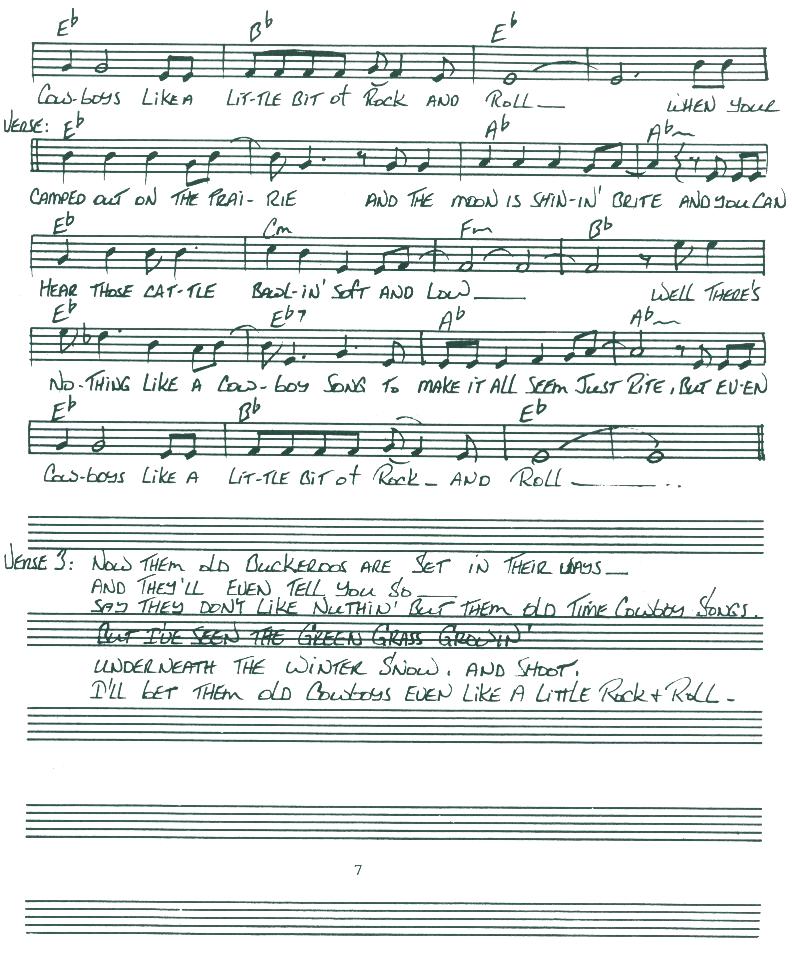 E♭ B♭ E♭
COW-BOYS LIKE A LIT-TLE BIT OF ROCK AND ROLL__ WHEN YOUR
VERSE: E♭ A♭ A♭~
CAMPED OUT ON THE PRAI-RIE AND THE MOON IS SHIN-IN' BRITE AND YOU CAN
E♭ Cm Fm B♭
HEAR THOSE CAT-TLE BAWL-IN' SOFT AND LOW____ WELL THERE'S
E♭ E♭7 A♭ A♭~
NO-THING LIKE A COW-BOY SONG TO MAKE IT ALL SEEM JUST RITE, BUT EV-EN
E♭ B♭ E♭
COW-BOYS LIKE A LIT-TLE BIT OF ROCK_ AND ROLL ________ ..
VERSE 3: NOW THEM OLD BUCKEROOS ARE SET IN THEIR WAYS__
AND THEY'LL EVEN TELL YOU SO____
SAY THEY DON'T LIKE NUTHIN' BUT THEM OLD TIME COWBOY SONGS.
BUT I'VE SEEN THE GREEN GRASS GROWIN'
UNDERNEATH THE WINTER SNOW. AND SHOOT.
I'LL BET THEM OLD COWBOYS EVEN LIKE A LITTLE ROCK + ROLL -
7